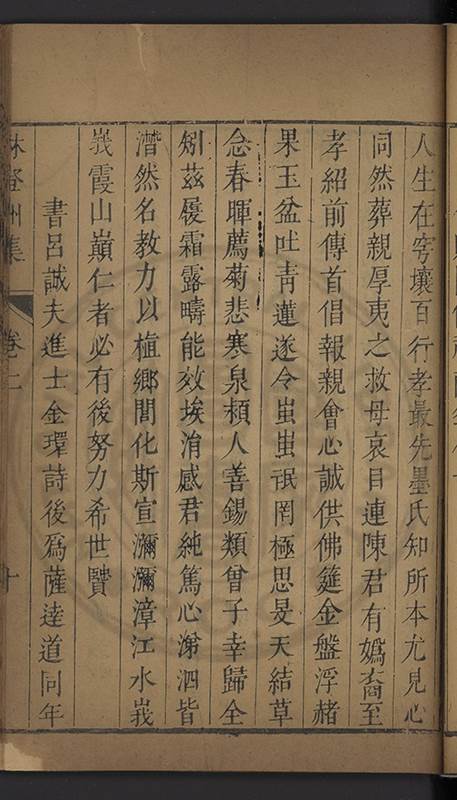 人生在穹壤百行孝最先墨氏知所本尤見心
同然葬親厚夷之救母哀目連陳君有媯裔至
孝紹前傳首倡報親會心誠供佛筵金盤浮赭
果玉盆吐青蓮遂令蚩蚩氓罔極思旻天結草
念春暉薦菊悲寒泉頴人善錫類曾子幸歸全
矧茲履霜露疇能效埃涓感君純篤心涕泗皆
潸然名教力以植鄉閭化斯宣瀰瀰漳江水峩
峩霞山巔仁者必有後努力希世賢
書呂誠夫進士金環詩後為薩逹道同年
林登州集 卷二 十